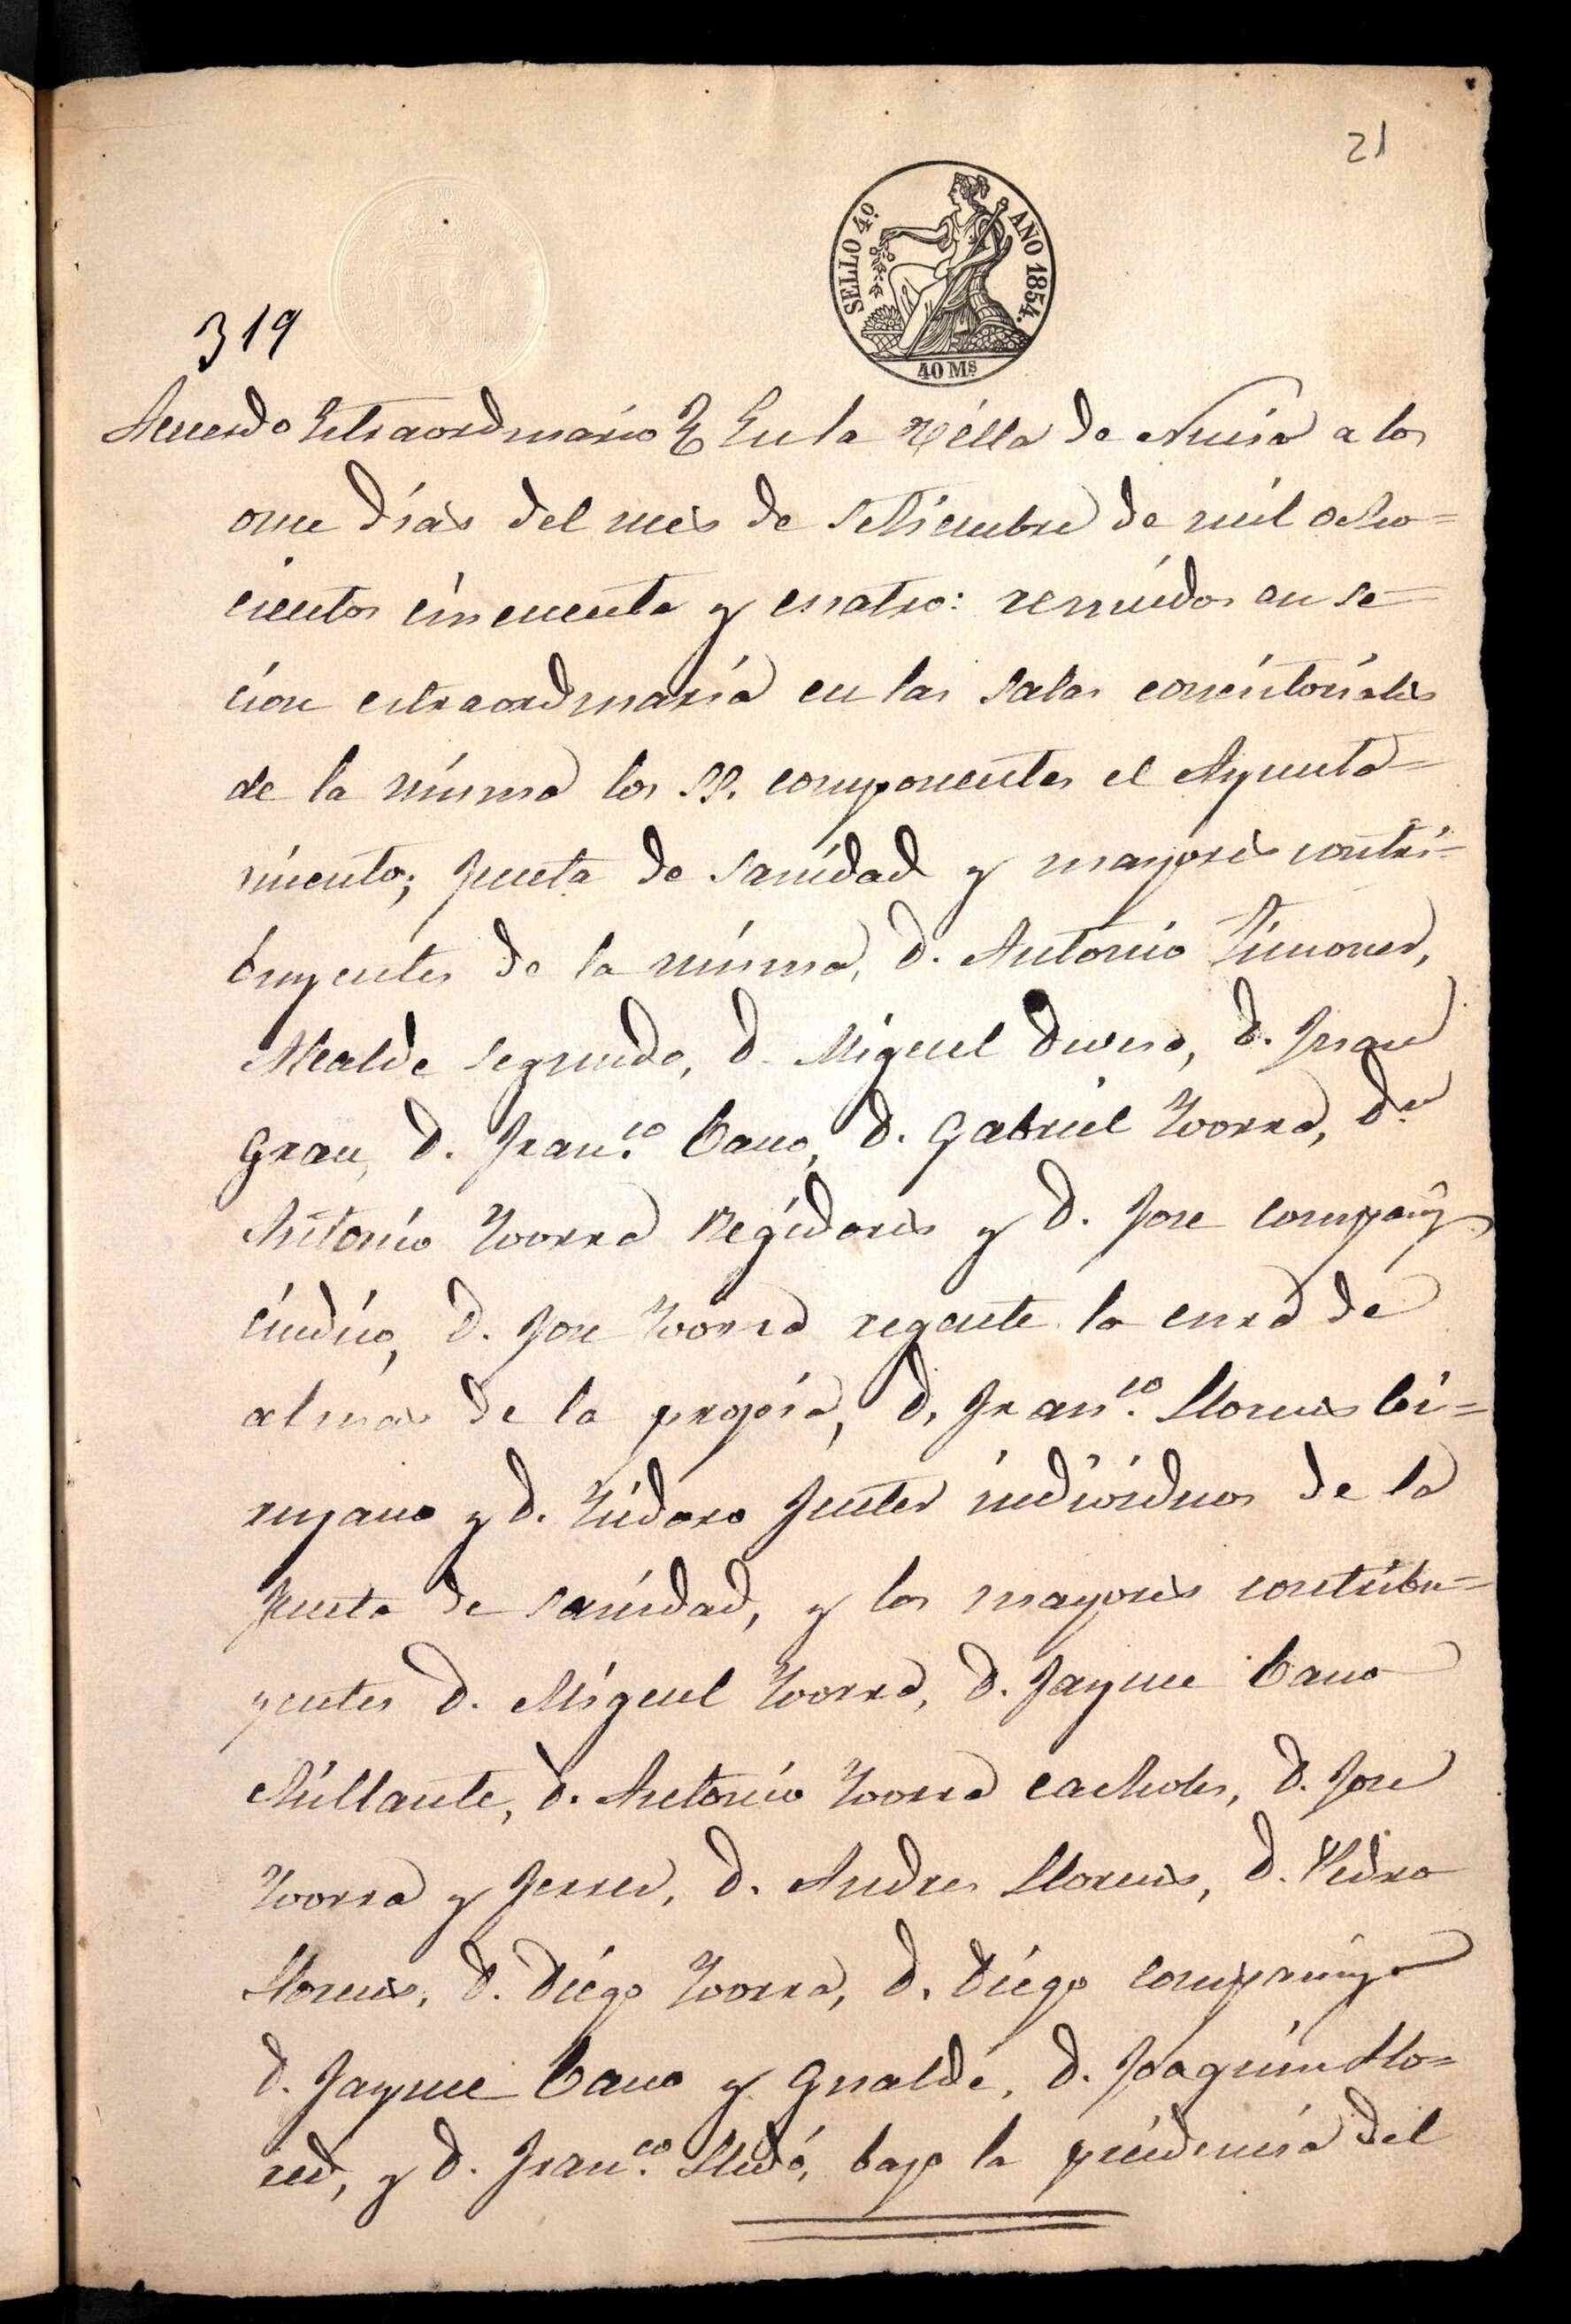 21
SELLO 4º AÑO 1854.
40 Ms
319
Acuerdo Estraordinario En la Villa de Nucia a los
once dias del mes de Setiembre de mil ocho=
cientos cincuenta y cuatro: reunidos en se=
cion estraordinaria en las salas consistoriales
de la misma los SS. componentes el Ayunta=
miento; Junta de Sanidad y mayores contri=
buyentes de la misma, D. Antonio Timoner,
Alcalde segundo, D. Miguel Devesa, D. Juan
Grau, D. Franco. Cano, D. Gabriel Yvorra, Dn
Antonio Yvorra Regidores y D. Jose Compañy
cindico, D. Jose Yvorra regente la cura de
almas de la propia, D. Franco. Llorens Ci=
rujano y D. Ysidoro Fuster individuos de la
Junta de sanidad, y los mayores contribu=
yentes D. Miguel Yvorra, D. Jayme Cano
D. Antonio Yvorra cacholes, D. Jose
Yvorra y Ferrer, D. Andres Llorens, D. Pedro
Llorens, D. Diego Yvorra, D. Diego Compañy
D. Jayme Cano y Gualde, D. Joaquin Llo=
red, y D. Franco. Lledó, bajo la precidencia del